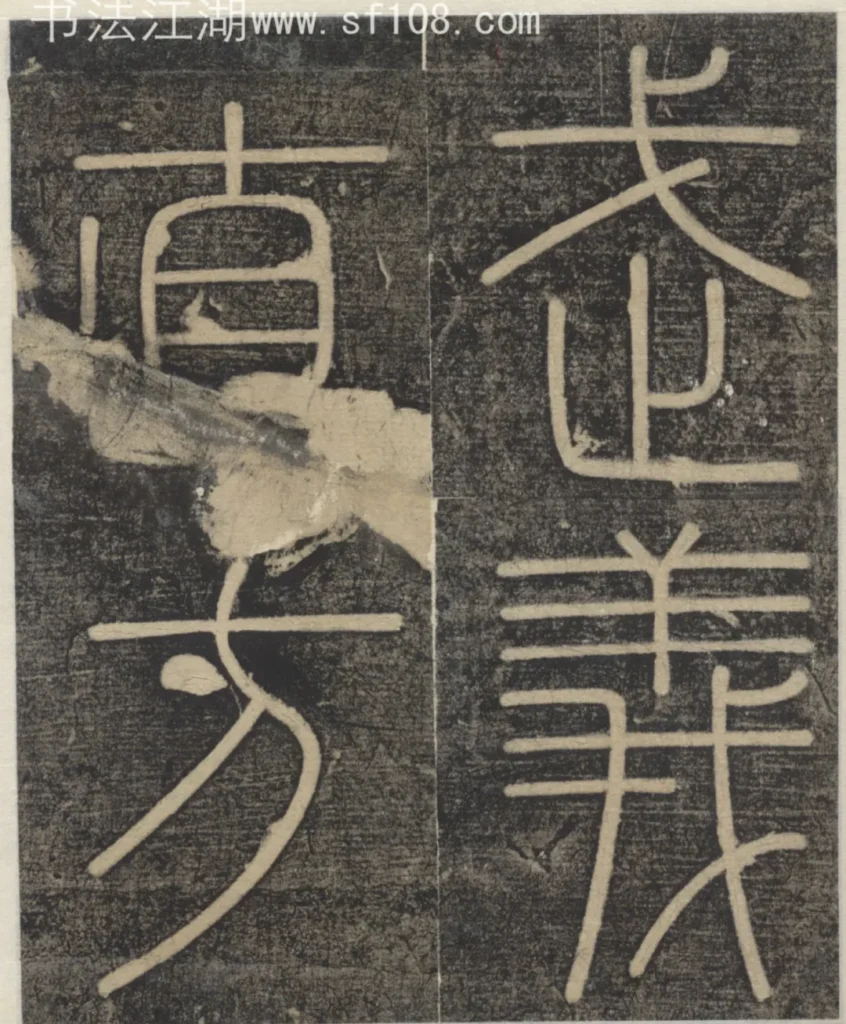 书法江湖www.sf108.com
武義
直方